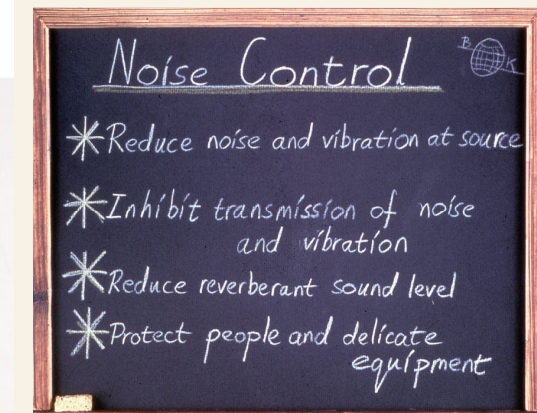 Noise Control
B K
* Reduce noise and vibration at source
* Inhibit transmission of noise
and vibration
* Reduce reverberant sound level
* Protect people and delicate
equipment